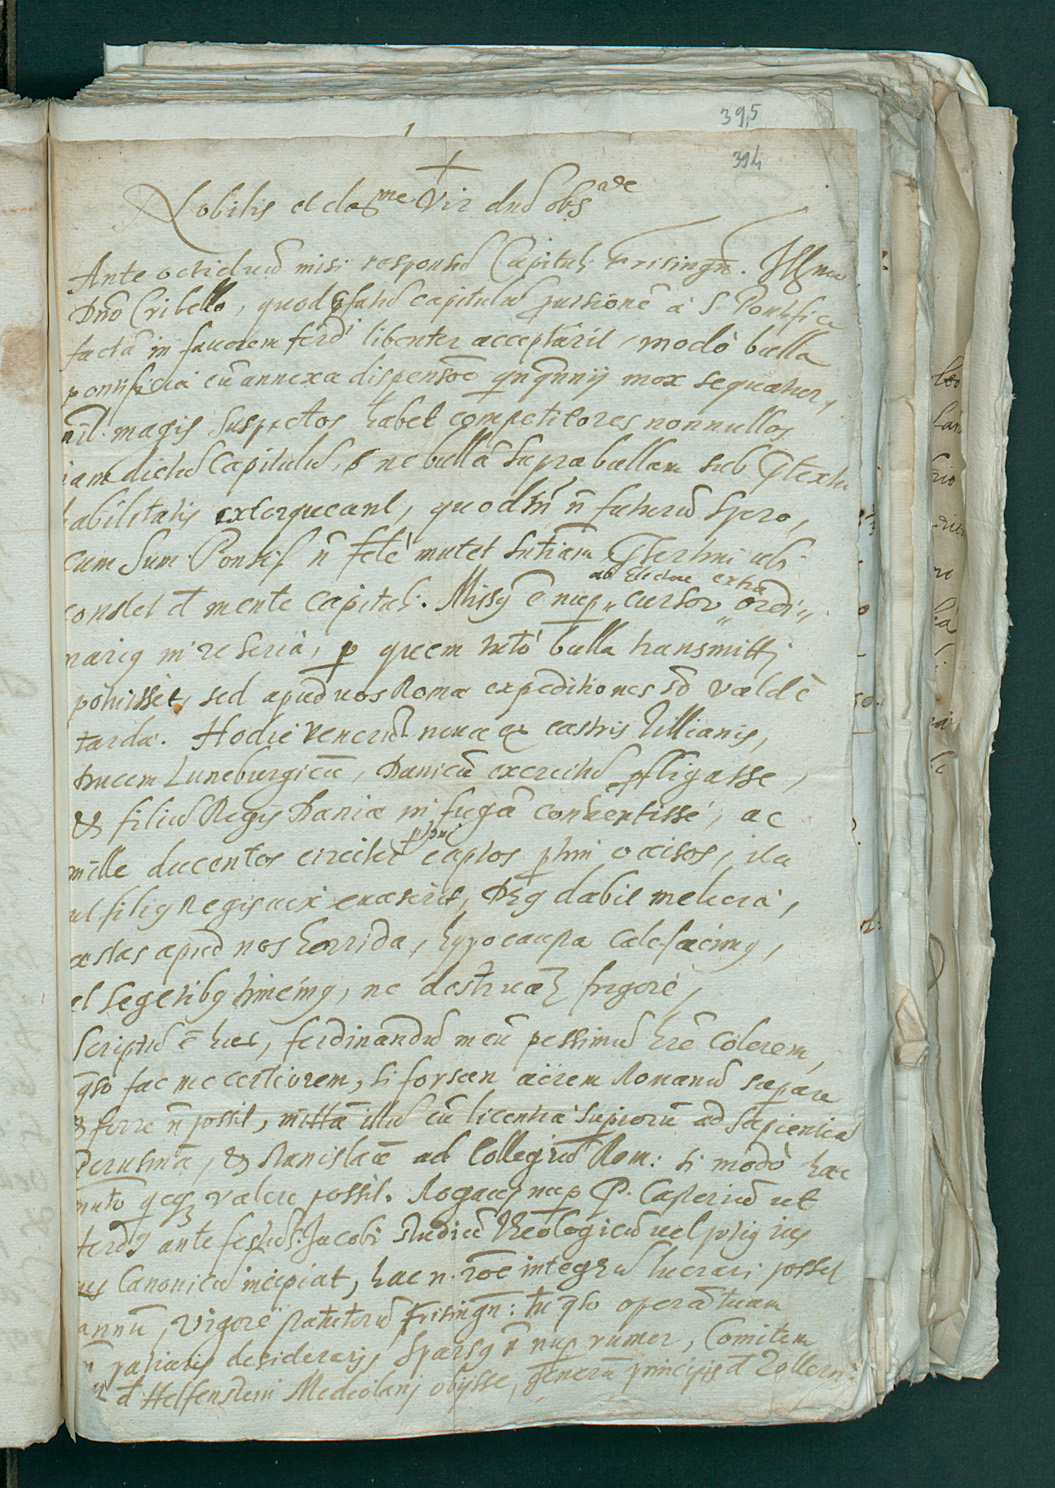 395
394
Nobilis et doc^me Vir dnē obs^de
Ante octiduū misi responsū Capituli Frisingn. Illmo
Dno Cribello, quod capitulū à S. Pontifice
factā in fauorem ferdi libenter acceptarit, modò bulla
pontificia cū annexa dispensōe mox sequatur,
magis suspectos habet competitores nonnullos
iam dictū Capitulū, ne bullā supra bullam sub
habilitatis extorqueant, quod tn̄ n̄ futurū spero,
cum Sum Pontif n̄ mutet ubi
constet d mente Capituli. Missq ē nup cursor ab Elctore extra ordi„
narius in re seria, p quem tutò bulla transmitti
potuisset, sed apud uos Romæ expeditiones sd valdè
tardæ. Hodie venerūt noua ex castris Tillianis,
Ducem Luneburgicū, Danicū exercitū pfligasse,
& filiū Regis Daniæ in fugā conuertisse, ac
mille ducentos circiter captos occisos, ita
ut filiq Regis uix euaserit, Deq dabit meliora,
æstas apud nos horrida, hypocausta calefacimq,
et segetibq timemq, ne destruā frigore,
Scriptū ē hæc, ferdinandū meū pessimū hr̄e colorem,
qso fac me certiorem, si forsan aërem Romanū
ferre n̄ possit, mittā illū cū licentia supiorū ad Sapientiā
Perusinā, & Stanislaū ad Collegiū Rom: si modò hæc
valere possit. Rogaui nup P. Casperiū ut
ferdq ante festū S. Jacobi studiū Theologicū uel
Canonicū incipiat, hac n. rōe integrū lucrari posset
annū, vigore statutorū Frisingn: tu qso operā tuam
patiaris desiderari, Sparsq ē nup rumor, Comitem
d Helfenstein Mediolani obijsse, generū principis d Zollern: